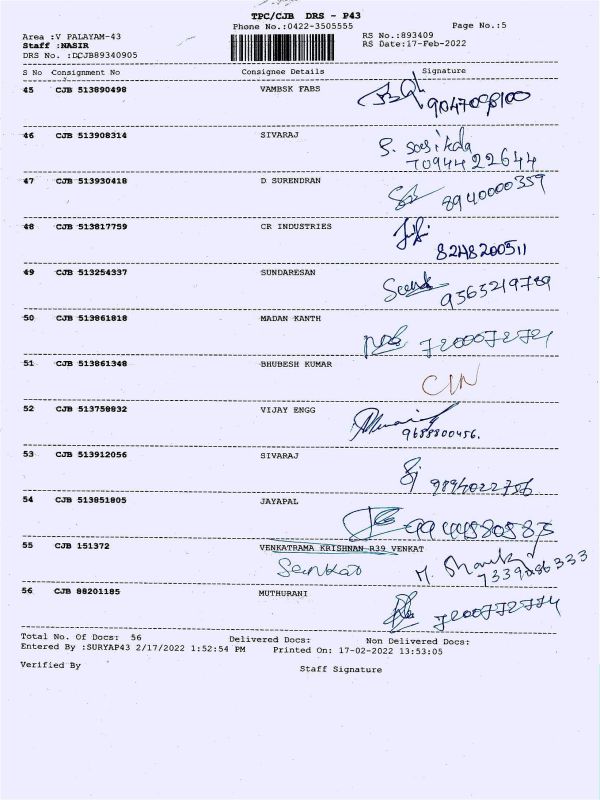 TPC/CJB DRS - P43
Phone No.:0422-3505555 Page No.:5
Area :V PALAYAM-43 RS No.:893409
Staff :NASIR RS Date:17-Feb-2022
DRS No. :DCJB89340905
S No Consignment No Consignee Details Signature
45 CJB 513890498 VAMBSK FABS
9047098100
46 CJB 513908314 SIVARAJ S. Sasikala
7094422644
47 CJB 513930418 D SURENDRAN
8940000359
48 CJB 513817759 CR INDUSTRIES
8248200511
49 CJB 513254337 SUNDARESAN
50 CJB 513861818 MADAN KANTH
51 CJB 513861348 BHUBESH KUMAR
52 CJB 513758832 VIJAY ENGG
9688800456.
53 CJB 513912056 SIVARAJ
9894022756
54 CJB 513851805 JAYAPAL
55 CJB 151372 VENKATRAMA KRISHNAN R39 VENKAT
56 CJB 88201185 MUTHURANI
Total No. Of Docs: 56 Delivered Docs: Non Delivered Docs:
Entered By :SURYAP43 2/17/2022 1:52:54 PM Printed On: 17-02-2022 13:53:05
Verified By Staff Signature